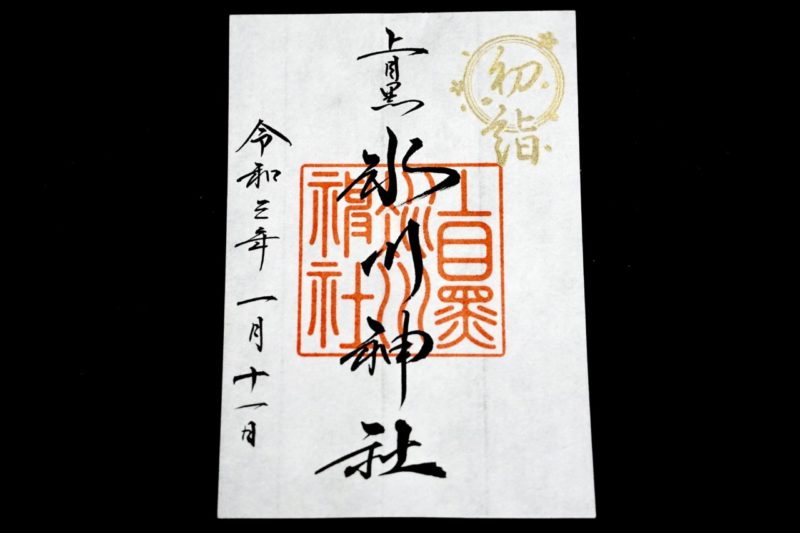 初詣
上目黒
氷川神社
上目黒
氷川
神社
令和三年 一月十一日